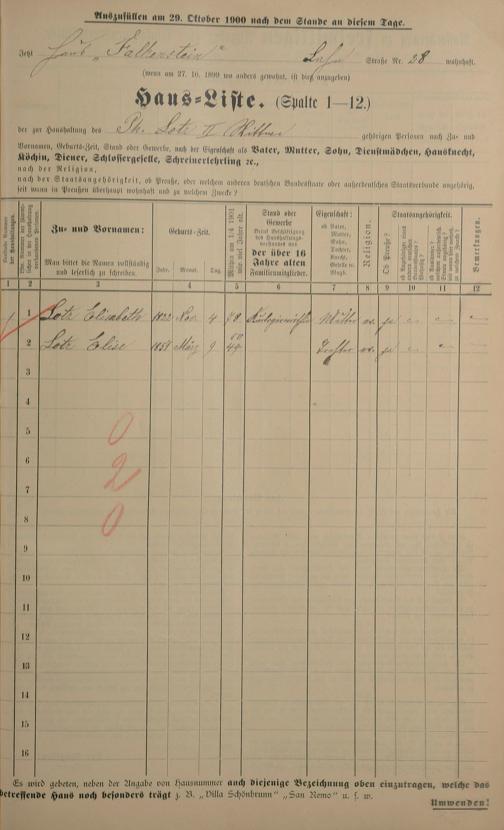 Auszufüllen am 29. Oktober 1900 nach dem Stande an diesem Tage.
Jetzt Haus „Falkenstein" Straße Nr. 28 wohnhaft.
(wenn am 27. 10. 1899 wo anders gewohnt, ist dies anzugeben)
Haus=Liste. (Spalte 1—12.)
der zur Haushaltung des Ph. Lotz II gehörigen Personen nach Zu= und
Vornamen, Geburts=Zeit, Stand oder Gewerbe, nach der Eigenschaft als Vater, Mutter, Sohn, Dienstmädchen, Hausknecht,
Köchin, Diener, Schlossergeselle, Schreinerlehrling ꝛc.,
nach der Religion,
nach der Staatsangehörigkeit, ob Preuße, oder welchem anderen deutschen Bundesstaate oder außerdeutschen Staatsverbande angehörig,
seit wann in Preußen überhaupt wohnhaft und zu welchem Zwecke?
Zu= und Vornamen:
Man bittet die Namen vollständig
und leserlich zu schreiben.
Geburts=Zeit.
Jahr. Monat. Tag.
Mithin am 1/4 1901
wie viel Jahre alt.
Stand oder
Gewerbe
der über 16
Jahre alten
Familienmitglieder.
Eigenschaft:
ob Vater,
Mutter,
Sohn,
Tochter,
Knecht,
Geselle u.
Magd.
Religion.
Staatsangehörigkeit.
Ob Preuße?
Bemerkungen.
1 2 3 4 5 6 7 8 9 10 11 12
1 Lotz Elisabeth 1822 Nov. 4 Mutter ev. ja
2 Lotz Elise März 9 Tochter ev. ja
3
4
5
6
7
8
9
10
11
12
13
14
15
16
0
2
0
Es wird gebeten, neben der Angabe von Hausnummer auch diejenige Bezeichnung oben einzutragen, welche das
betreffende Haus noch besonders trägt z. B. „Villa Schönbrunn" „San Remo" u. s. w.
Umwenden!